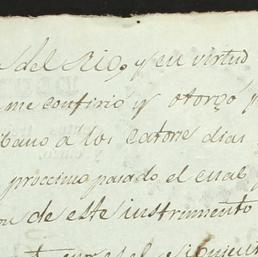 del Rio, y en virtud
me confirió y otorgó
bano a los catorse dias
proccimo pasado el cual
de este instrumento
es el siguien